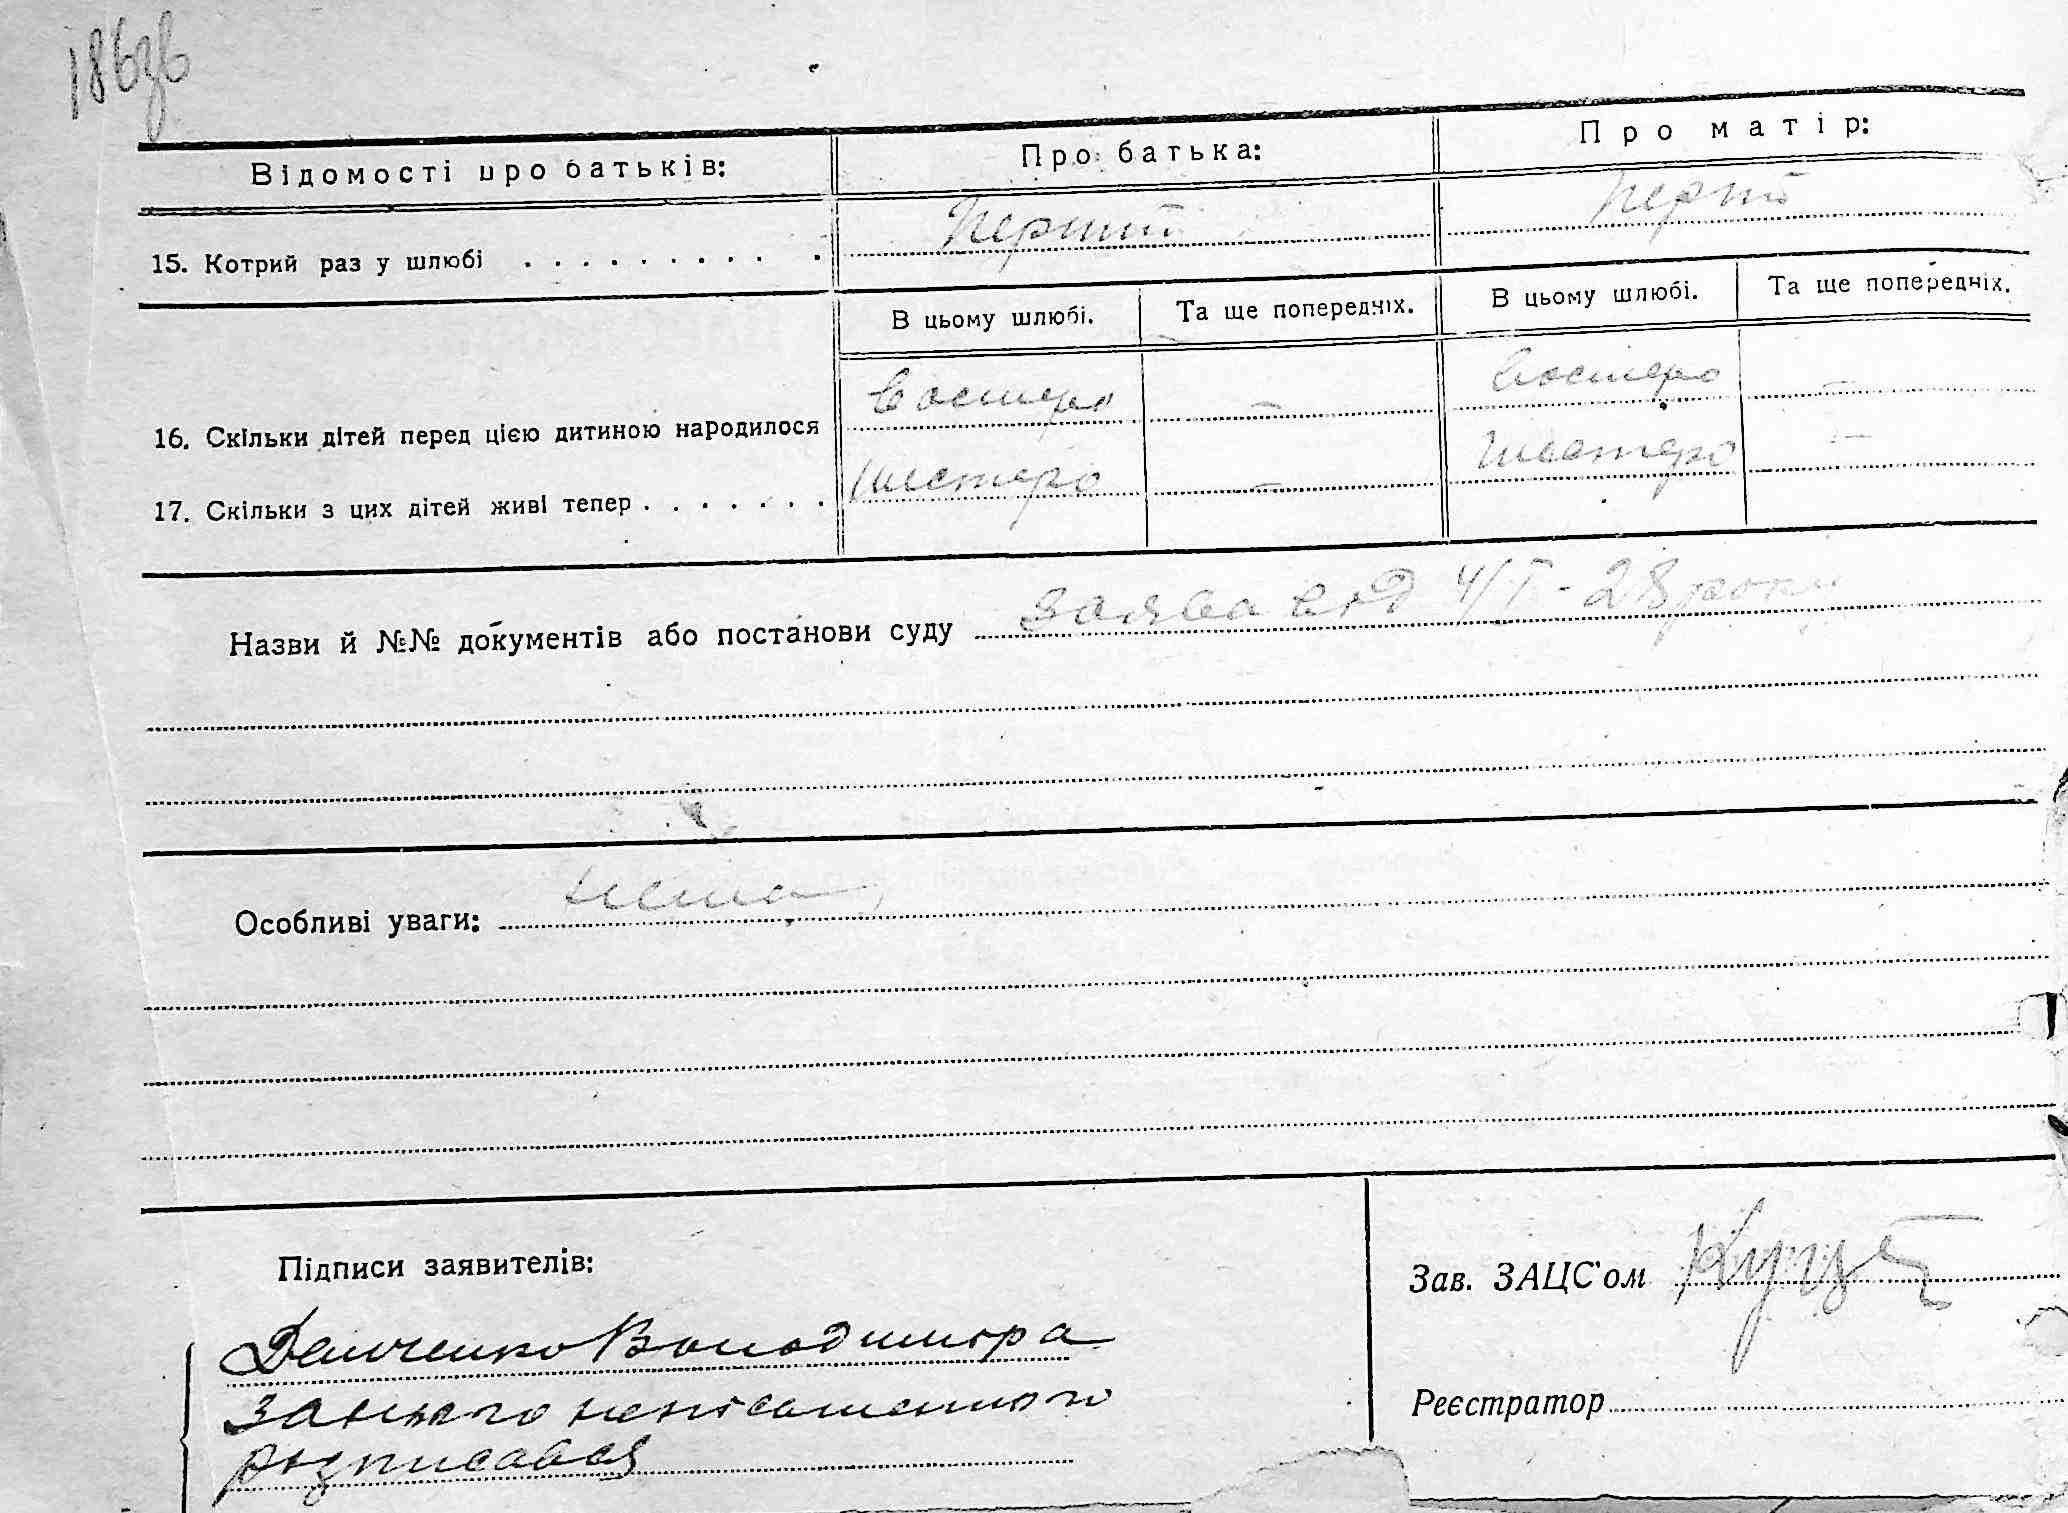 186зв
Відомості про батьків: Про батька: Про матір:
15. Котрий раз у шлюбі . . . . . . . . . . Перший Перш
В цьому шлюбі. Та ще попередніх. В цьому шлюбі. Та ще попередніх.
16. Скільки дітей перед цією дитиною народилося Восмеро — Восмеро —
17. Скільки з цих дітей живі тепер . . . . . . . Шестеро — Шестеро —
Назви й №№ документів або постанови суду заява від 4/I - 28 року
Особливі уваги: нема
Підписи заявителів:
Зав. ЗАЦС'ом
Демченко Володимира
за нього неписьменного
Реєстратор
розписався